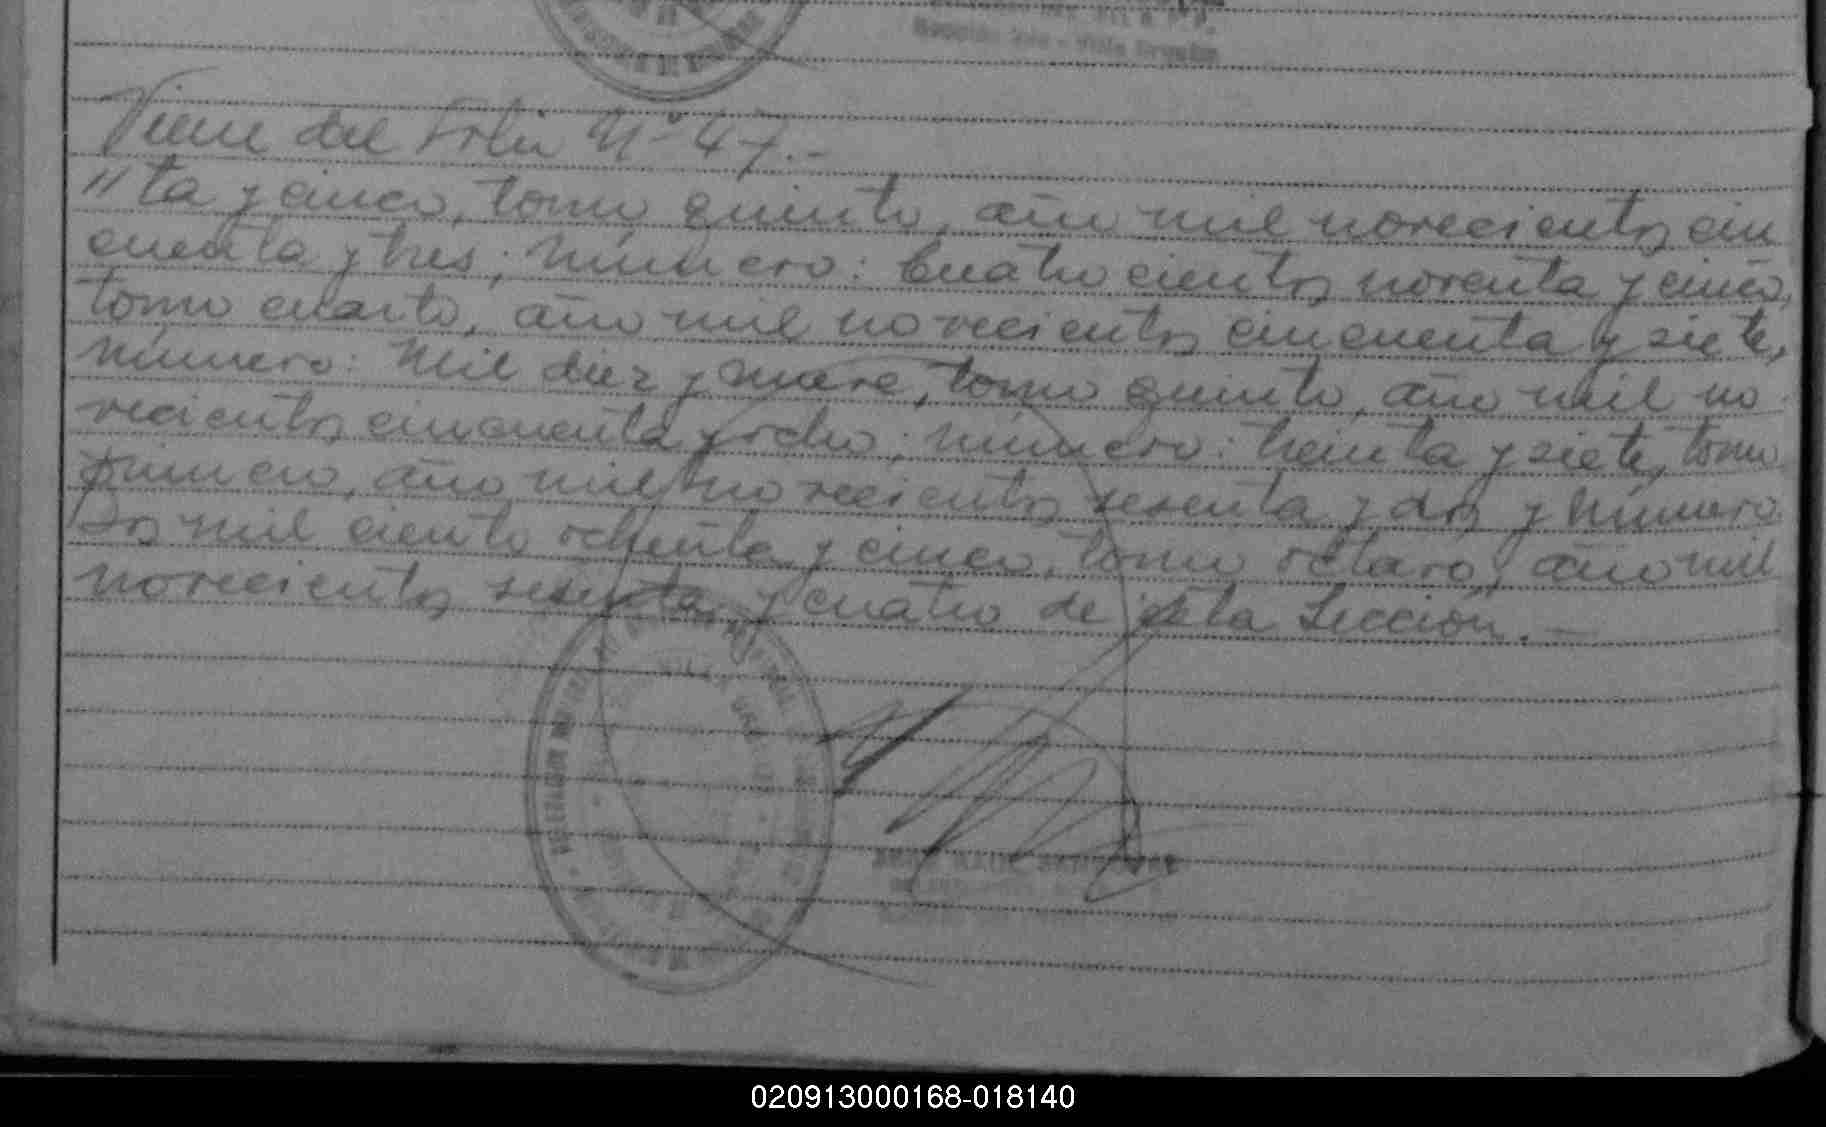 Sección 2da - Villa Urquiza
Viene del Folio Nº 47.-
"ta y cinco, tomo quinto, año mil novecientos cin
cuenta y tres; número: Cuatrocientos noventa y cinco,
tomo cuarto, año mil novecientos cincuenta y siete,
número: Mil diez y nueve, tomo quinto, año mil no
vecientos cincuenta y ocho; número: treinta y siete, tomo
primero, año mil novecientos sesenta y dos y número
Dos mil ciento ochenta y cinco, tomo octavo, año mil
novecientos sesenta y cuatro de esta Sección.-
VILLA URQUIZA
020913000168-018140